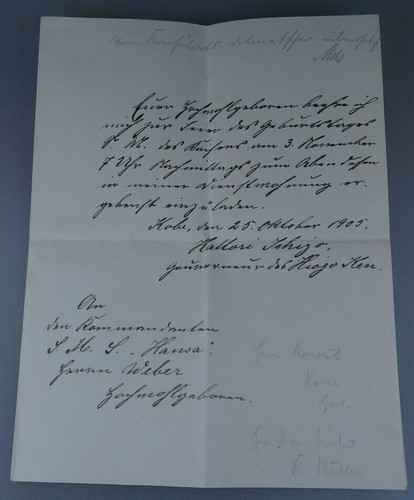 vom Konsulats Dolmetscher übersetzt
Euer Hochwohlgeboren beehre ich
mich zur Feier des Geburtstages
S. M. des Kaisers am 3. November
7 Uhr Nachmittags zum Abendessen
in meiner Dienstwohnung er-
gebenst einzuladen.
Kobe, den 25. Oktober 1905.
Hattori Ichizo,
Gouverneur des Hiogo Ken.
An
den Kommandanten
S. M. S. „Hansa“,
Herrn Weber
Hochwohlgeboren.
Herr Konsul